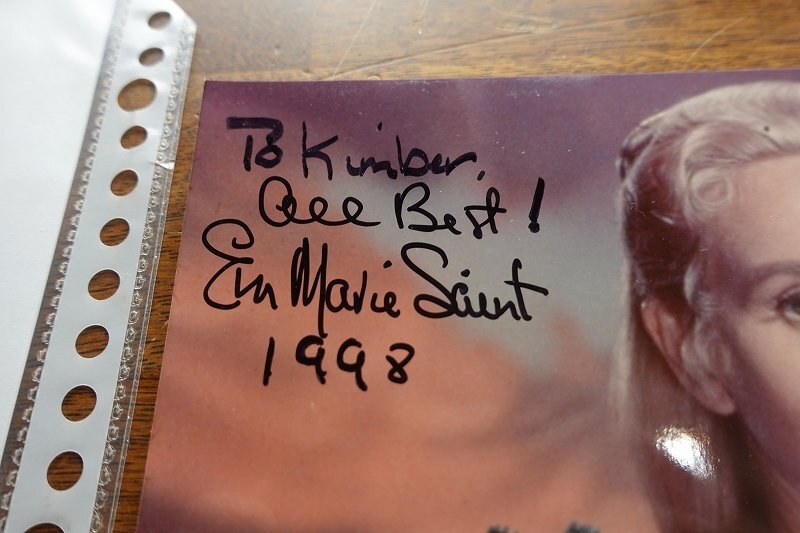 To Kimber,
All Best!
Eva Marie Saint
1998